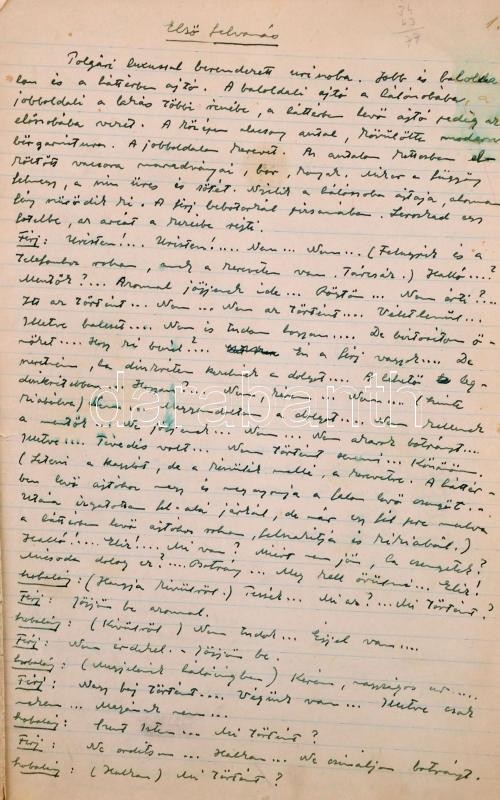 Első felvonás
34
43
77
1.
Polgári luxussal berendezett úriszoba. Jobb és balolda
lon és a háttérben ajtó. A baloldali ajtó a hálószobába, a
jobboldali a lakás többi részébe, a háttérben levő ajtó pedig az
előszobába vezet. A középen alacsony asztal, körülötte modern
bőrgarnitura. A jobboldalon kerevet. Az asztalon kettesben
költött vacsora maradványai, bor, konyak. Mikor a függöny
felmegy, a szin üres és sötét. Nyílik a hálószoba ajtaja, ahonnan
fény szűrődik ki. A férj bebotorkál pizsamában. Leroskad egy
fotelbe, az arcát a kezeibe rejti.
Férj: Uristen!... Uristen!... Nem... Nem... (Felugrik és a
telefonhoz rohan, amely a kereveten van. Tárcsáz.) Halló...!
Mentők?... Azonnal jőjjenek ide... Rögtön... Nem érti?...
Itt az történt... Nem... Nem az történt.... Véletlenül...
Illetve baleset.... Nem is tudom hogyan.... De biztosítom ö-
nöket.... Hogy ki beszél?... Én a férj vagyok.... De
szeretném, ha diszkréten kezelnék a dolgot.... A lehető leg-
diszkrétebben! Hogyan?... Nem, kérem.... Nem.... (Szinte
kiabálva) Nem... Meggondoltam a dolgot... Nem kellenek
a mentők... Ne jőjjenek... Nem... Nem akarok botrányt...
Illetve... Tévedés volt... Nem történt semmi... Köszönöm.
(Leteszi a kagylót, de a készülék mellé, a kerevetre. A háttér-
ben levő ajtóhoz megy és megnyomja a falon levő csengőt...
Utána izgatottan fel-alá járkál, de már egy fél perc mulva
a háttérben levő ajtóhoz rohan, felszakítja és kikiabál.)
Halló!... Eliz!... Mi van? Miért nem jön, ha csengetek?
Micsoda dolog ez?... Botrány... Meg kell őrülni... Eliz!
Szobalány: (Hangja kívülről.) Tessék... Mi az?... Mi történt?
Férj: Jőjjön be azonnal.
Szobalány: (Kívülről) Nem tudok... Éjjel van....
Férj: Nem érdekel... Jőjjön be.
Szobalány: (Megjelenik hálóingben) Kérem, nagyságos úr....
Férj: Nagy baj történt.... Végünk van... Illetve csak
nekem... Magának nem...
Szobalány: Szent Isten... Mi történt?
Férj: Ne ordítson... Halkan... Ne csináljon botrányt.
Szobalány: (Halkan) Mi történt?
darabanth